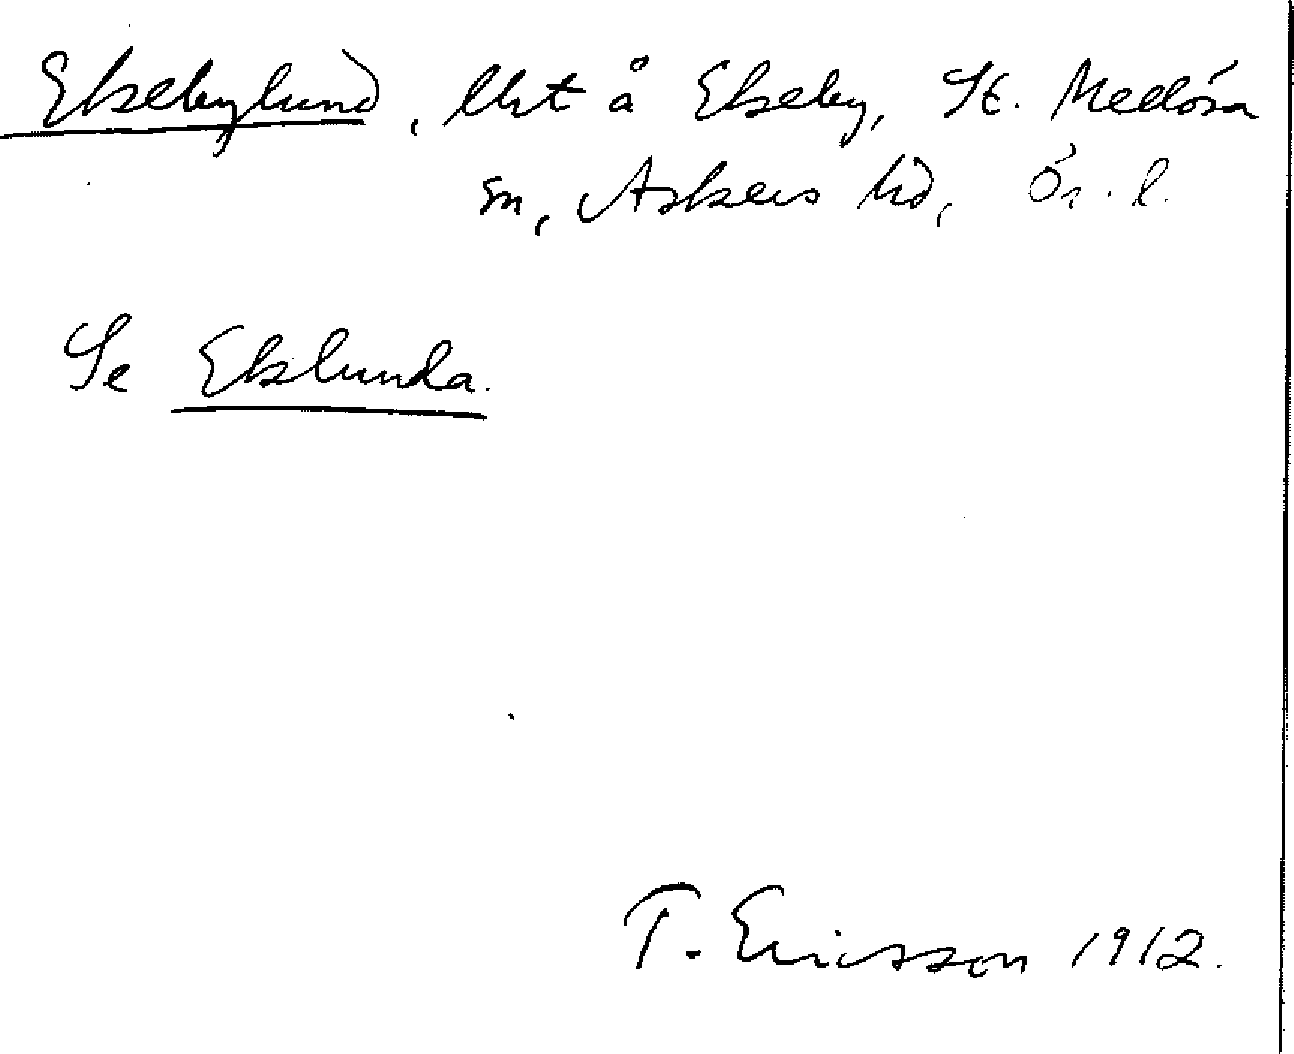 Ekebylund, lht å Ekeby, St. Mellösa
sn, Askers hd, Ör. l.
Se Eklunda.
T. Ericsson 1912.